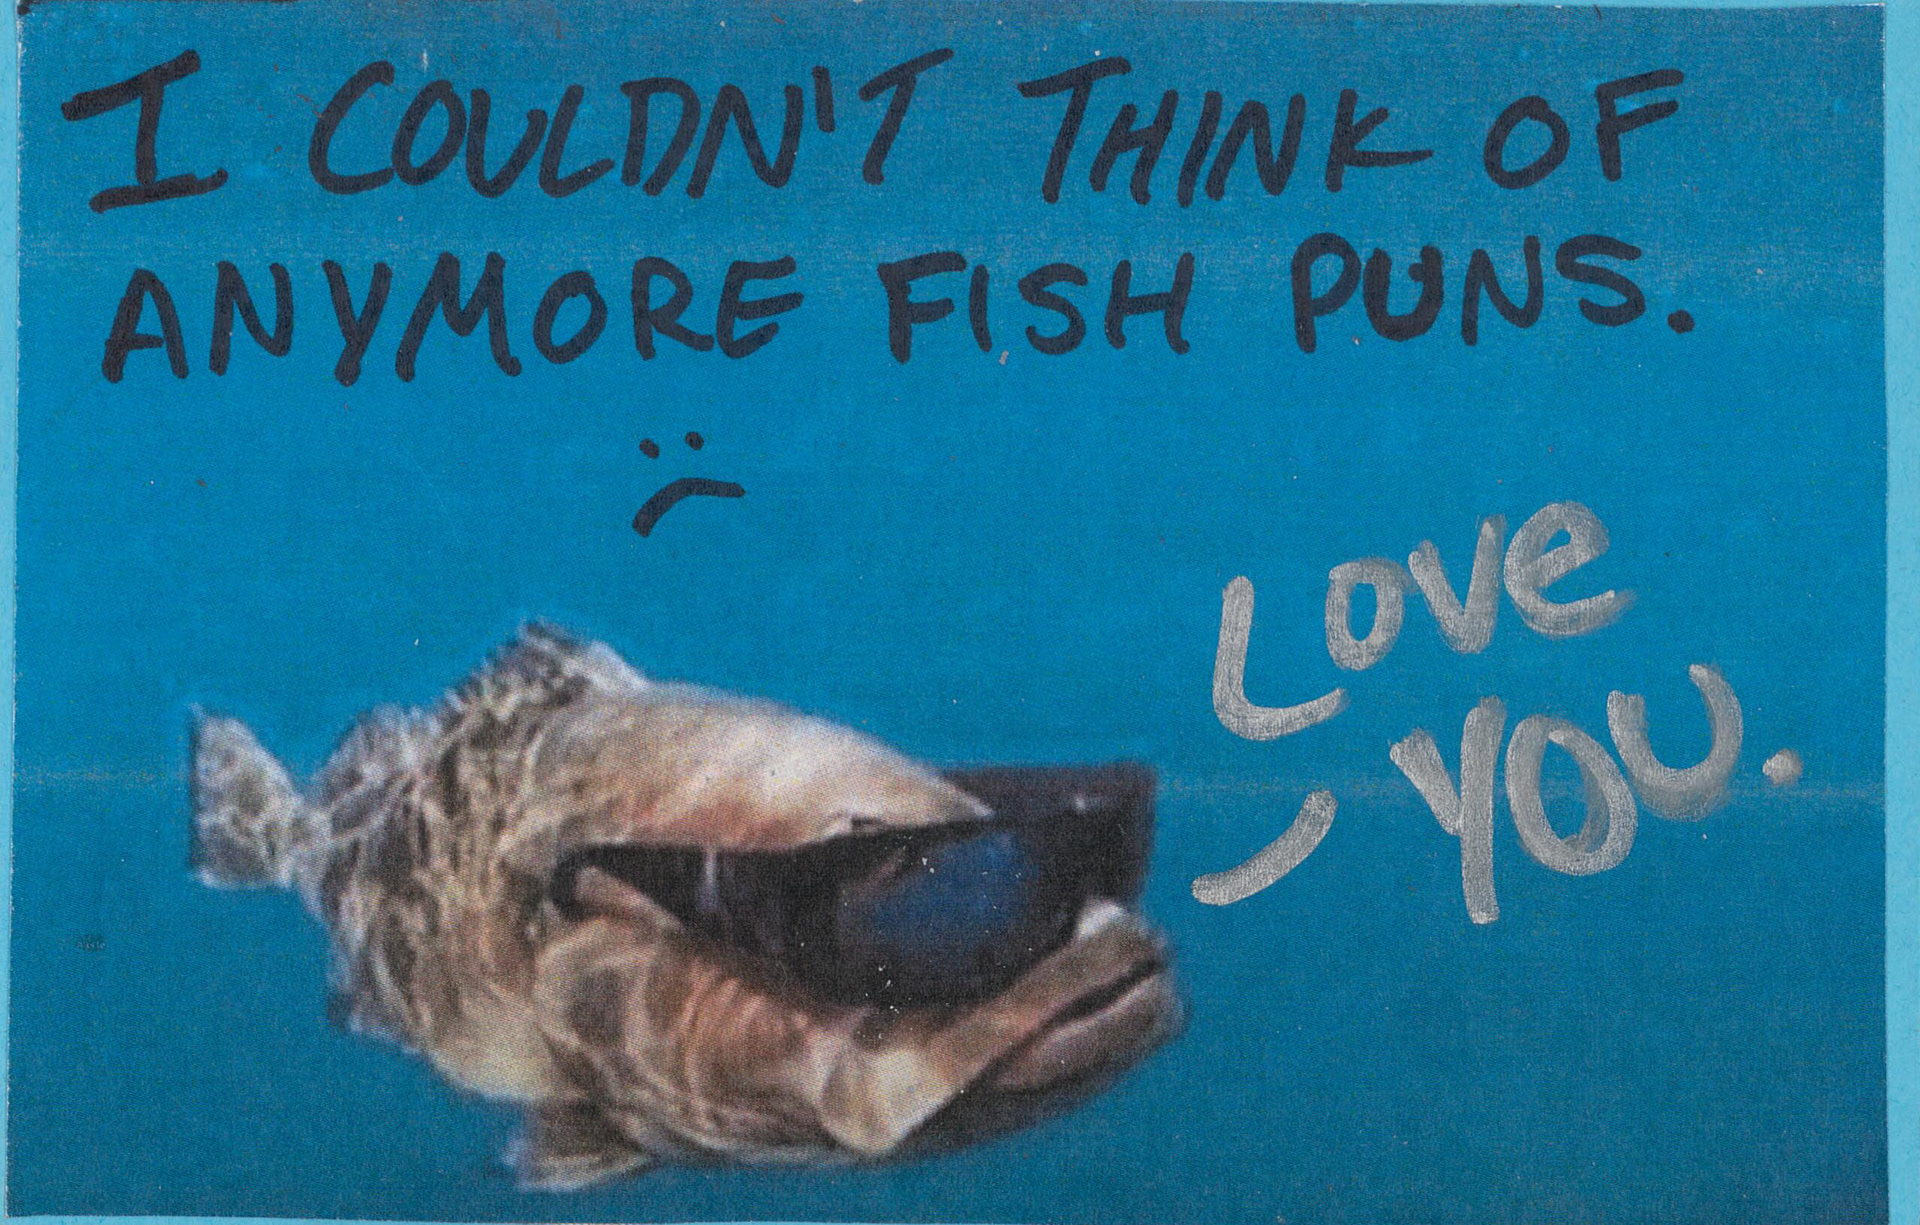 I COULDN'T THINK OF
ANYMORE FISH PUNS.
:(
LOVE
YOU.